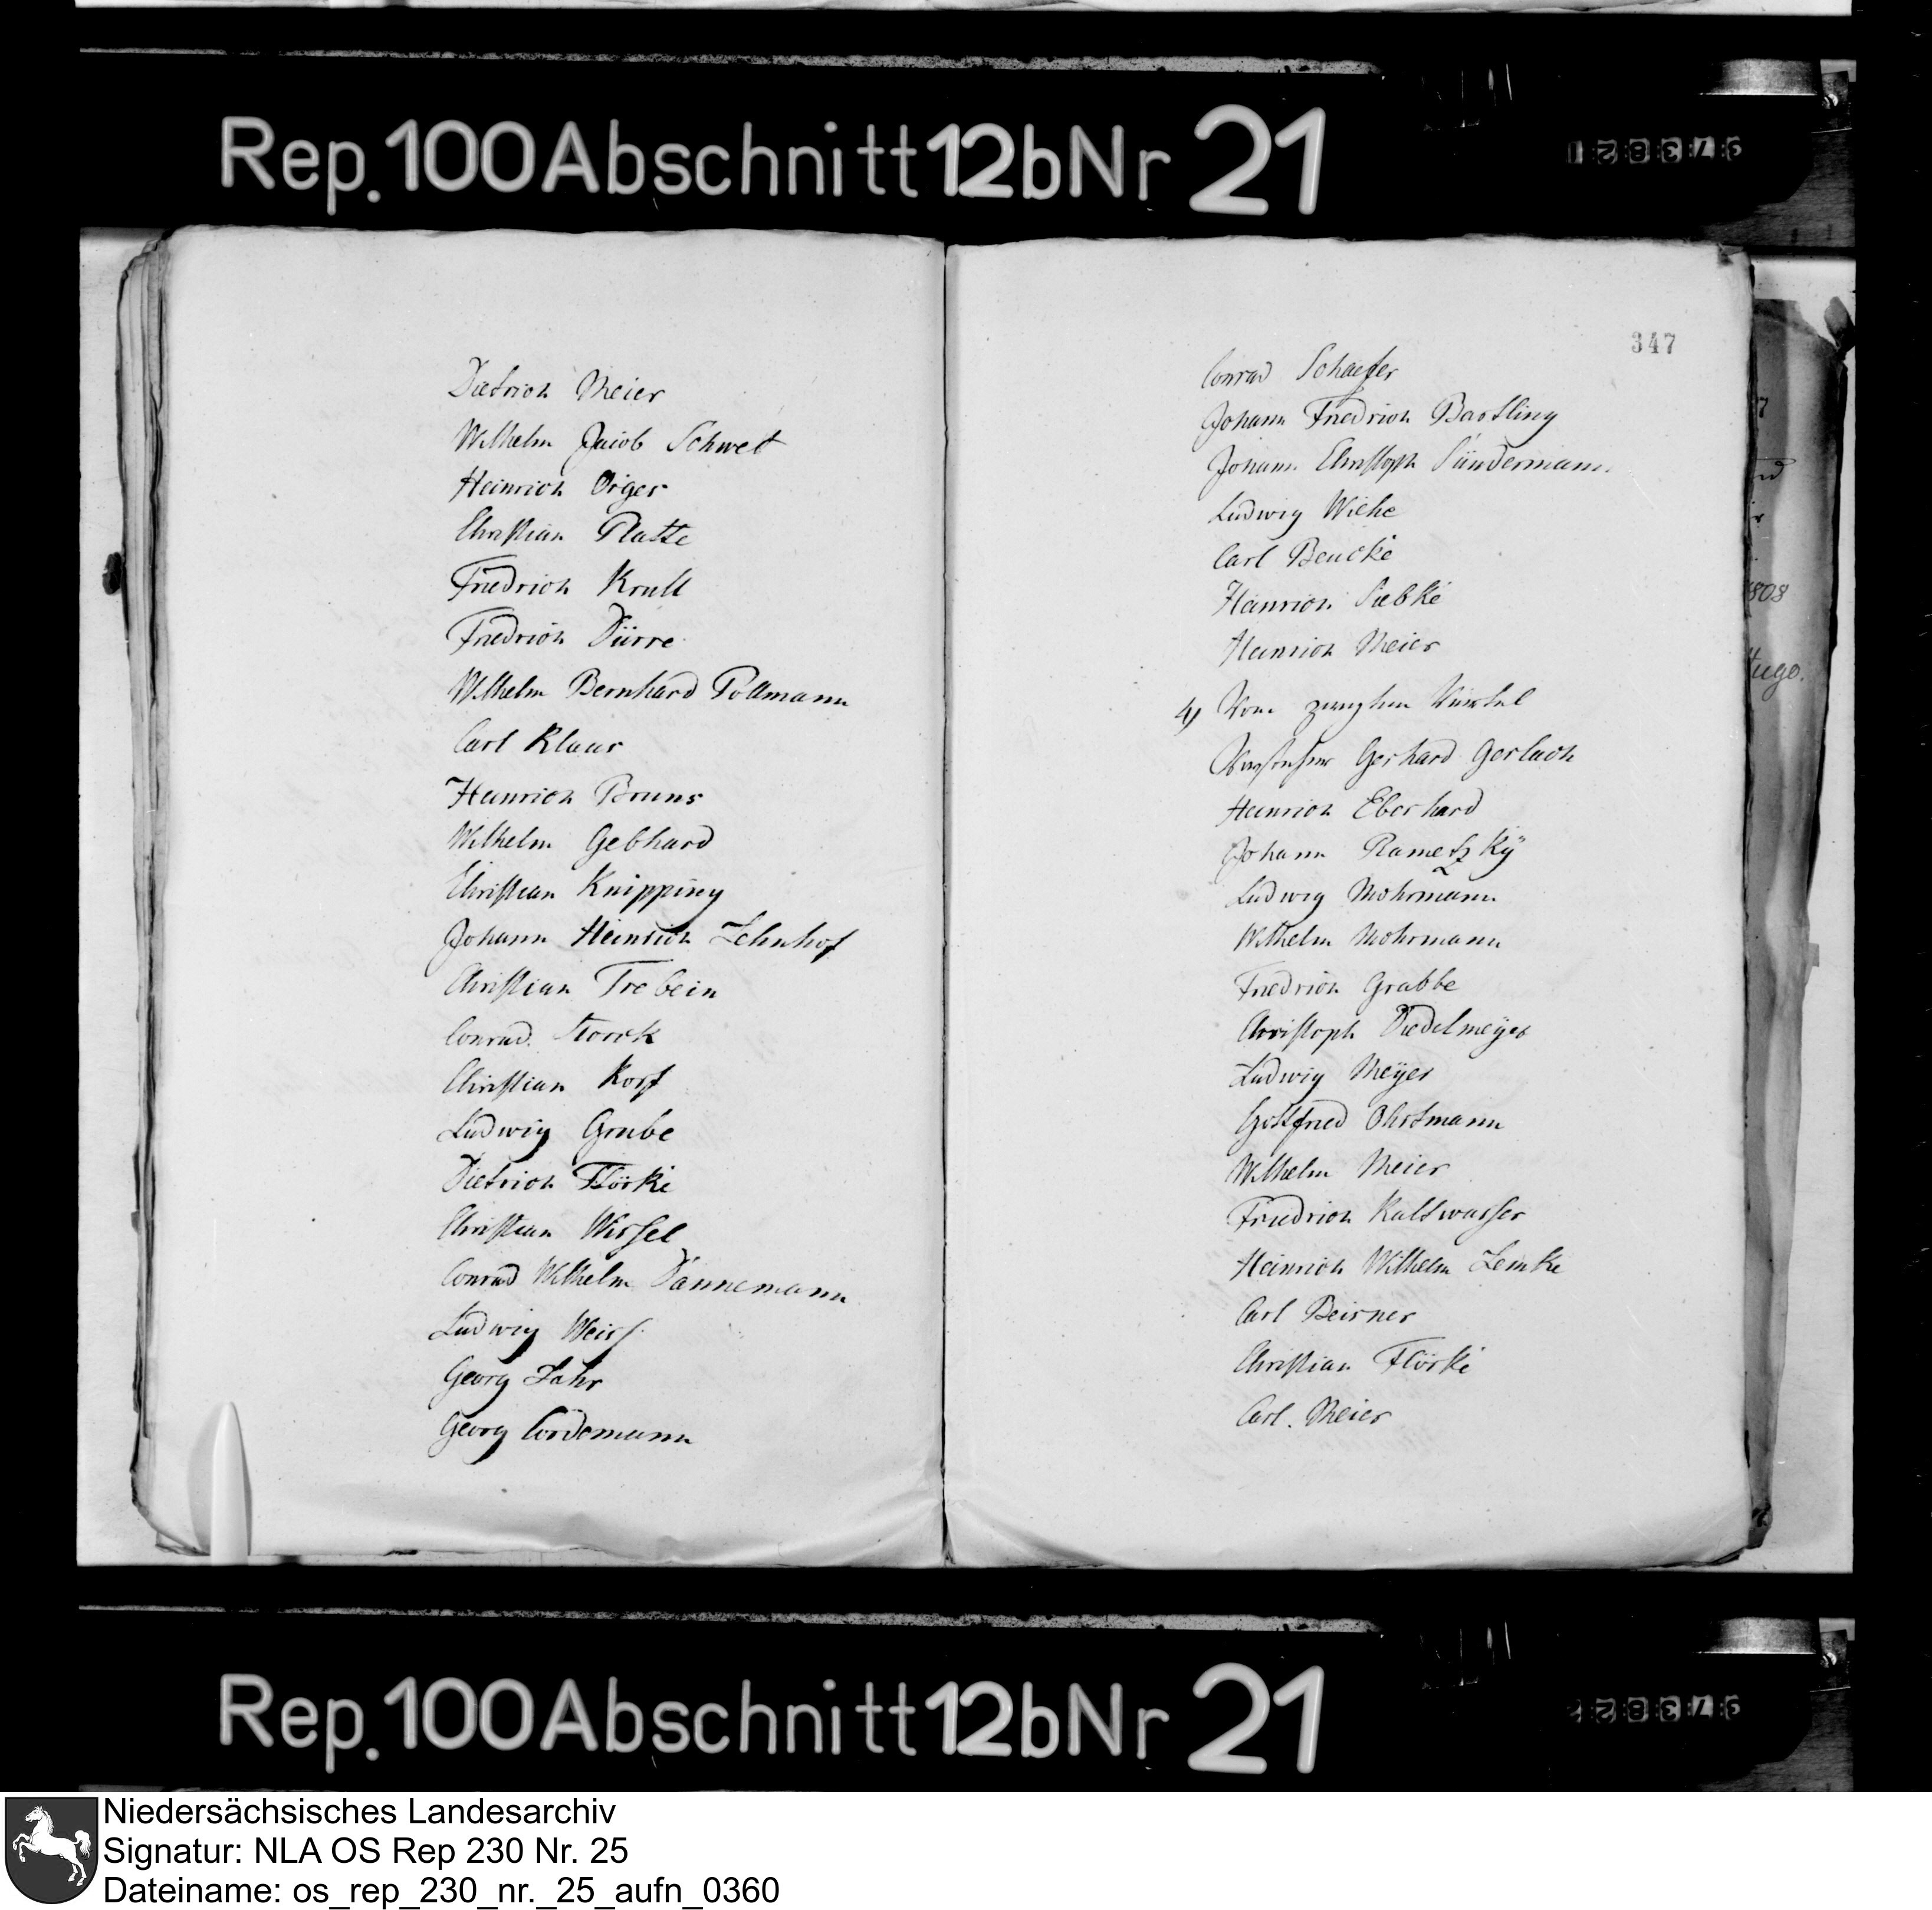 Rep. 100 Abschnitt 12b Nr 21
Dietrich Meier
Wilhelm Jacob Schwet
Heinrich Oiger
Christian Platte
Friedrich Krull
Friedrich Dürre
Wilhelm Bernhard Pollmann
Carl Klaus
Heinrich Bruns
Wilhelm Gebhard
Christian Knipping
Johann Heinrich Lehnhof
Christian Trebein
Conrad Storck
Christian Korf
Ludwig Grube
Dietrich Flörke
Christian Wissel
Conrad Wilhelm Dannemann
Ludwig Weiss
Georg Jahr
Georg Cordemann
347
Conrad Schaefer
Johann Friedrich Bartling
Johann Christoph Sündermann
Ludwig Wiehe
Carl Beucke
Heinrich Siebke
Heinrich Meier
4) Vom zweyten Viertel
Vorsteher Gerhard Gerlach
Heinrich Eberhard
Johann Rametzkÿ
Ludwig Mohrmann
Wilhelm Mohrmann
Friedrich Grabbe
Christoph Diedelmeÿer
Ludwig Meÿer
Gottfried Ohrtmann
Wilhelm Meier
Friedrich Kaltwasser
Heinrich Wilhelm Lemke
Carl Beisner
Christian Flörke
Carl Meier
1808
Hugo.
Rep. 100 Abschnitt 12b Nr 21
Niedersächsisches Landesarchiv
Signatur: NLA OS Rep 230 Nr. 25
Dateiname: os_rep_230_nr._25_aufn_0360